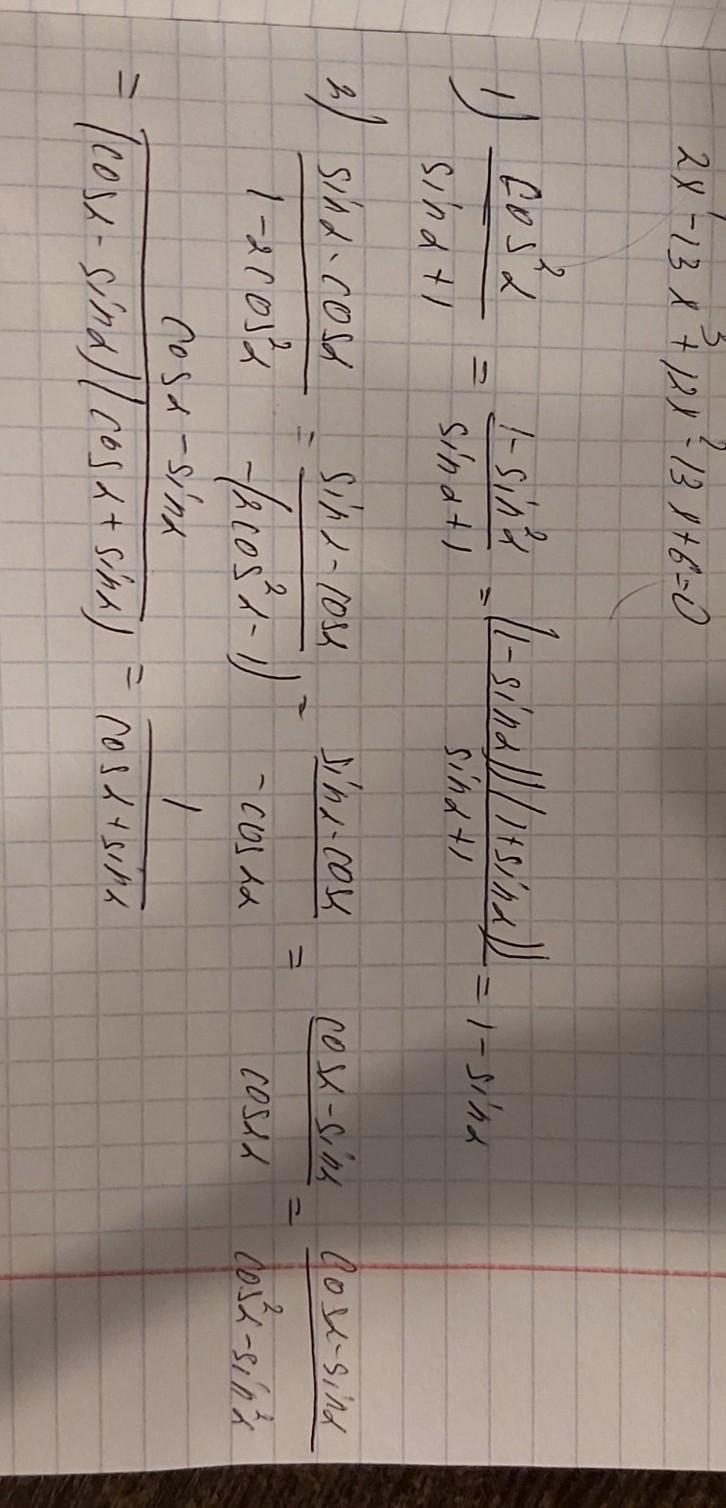 2x⁴-13x³+12x²-13x+6=0
1) cos²α / sinα+1 = 1-sin²α / sinα+1 = (1-sinα)(1+sinα) / sinα+1 = 1-sinα
2) sinα-cosα / 1-2cos²α = sinα-cosα / -(2cos²α-1) = sinα-cosα / -cos2α = cosα-sinα / cos2α = cosα-sinα / cos²α-sin²α
= cosα-sinα / (cosα-sinα)(cosα+sinα) = 1 / cosα+sinα